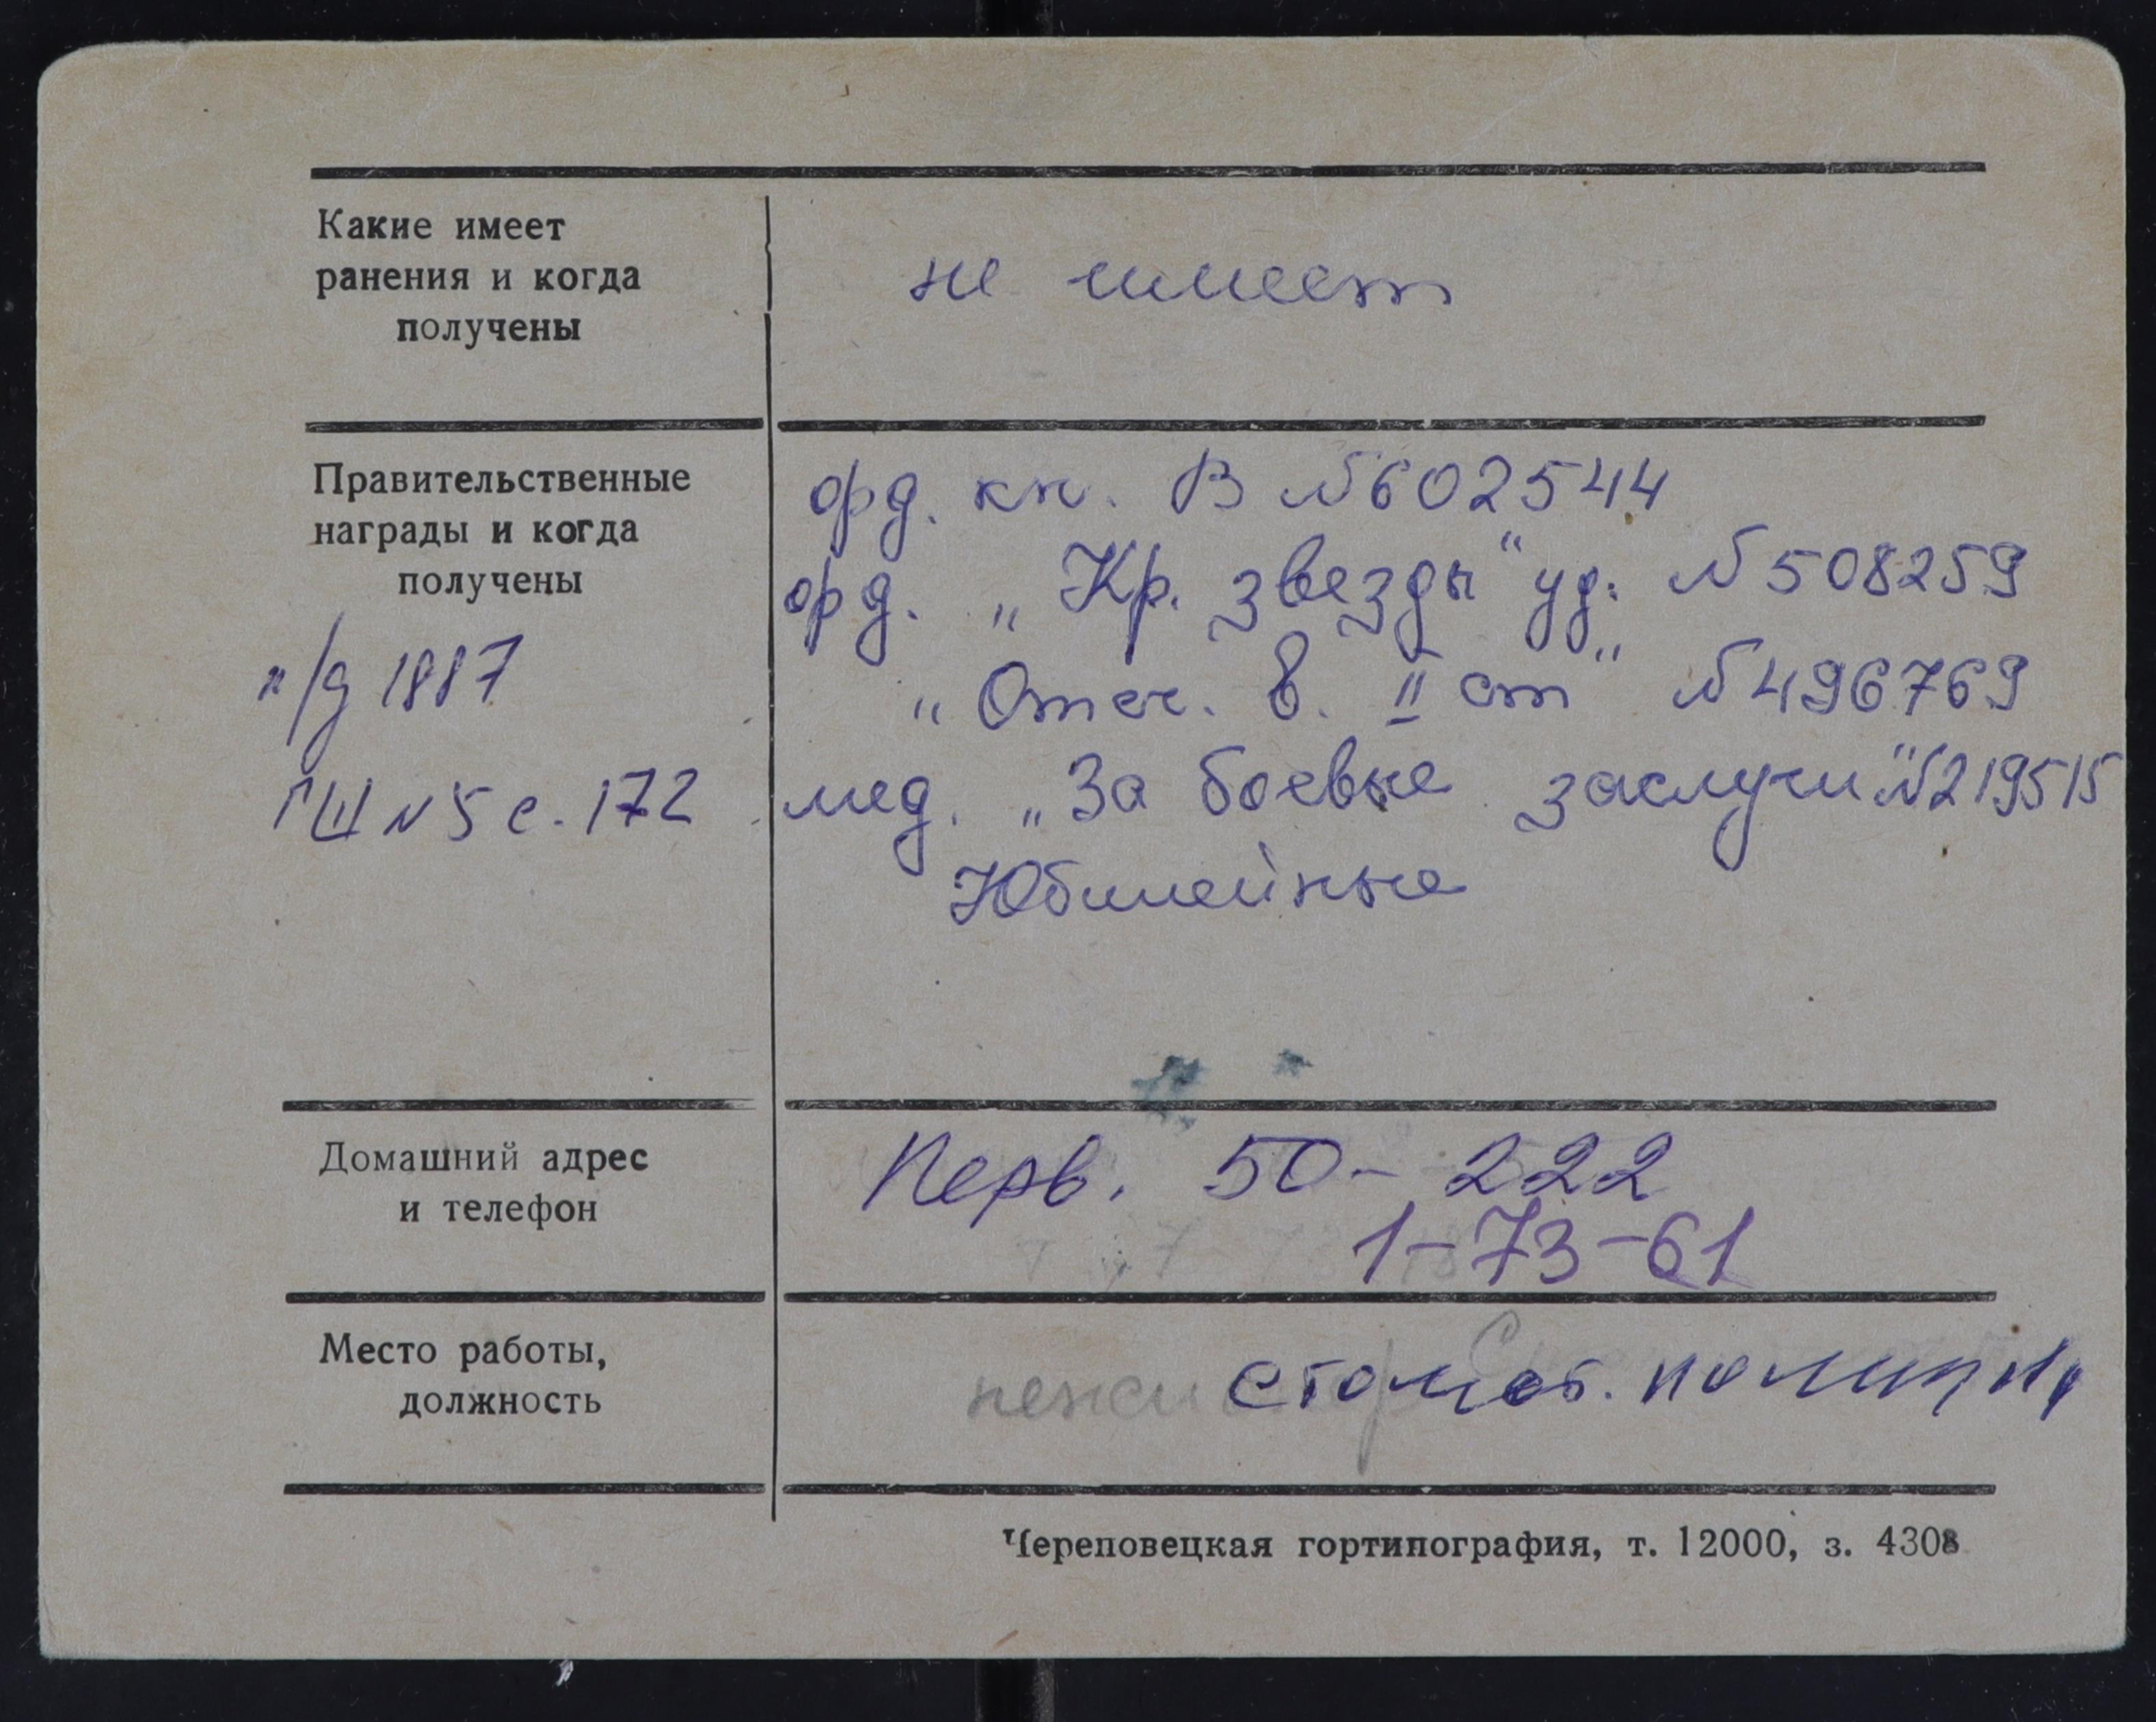 Какие имеет
ранения и когда
получены
не имеет
Правительственные
награды и когда
получены
п/д 1887
ГШ N5 с. 172
орд. кн. В N602544
орд. „Кр. звезды" уд. N508259
„Отеч. в. II ст" N496769
мед. „За боевые заслуги" N219515
Юбилейные
Домашний адрес
и телефон
Перв. 50-222
1-73-61
Место работы,
должность
стомат. полик
Череповецкая гортипография, т. 12000, з. 4308